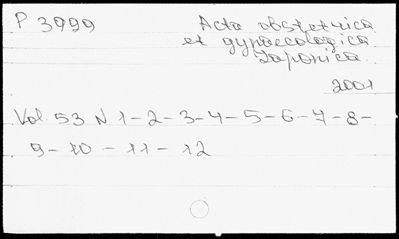 P 3999 Acta obstetrica
et gynaecologica
Japonica
2001
Vol. 53 N 1-2-3-4-5-6-7-8-
9-10-11-12